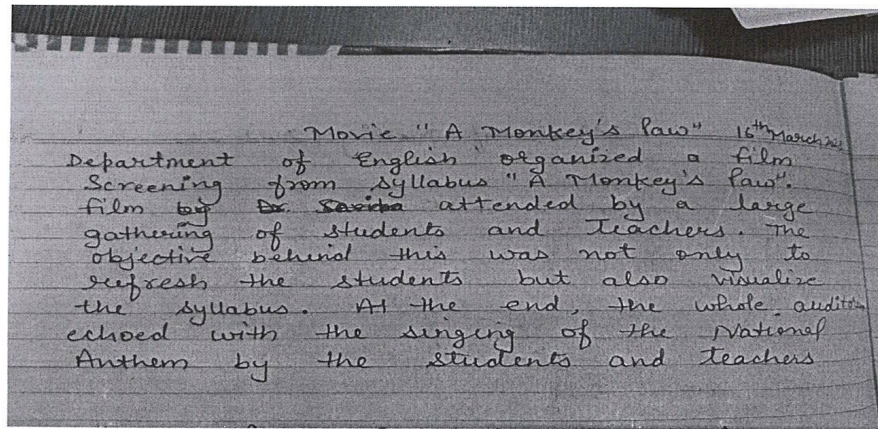 Movie "A Monkey's Paw" 16th March
Department of English organized a film
Screening from syllabus "A Monkey's Paw".
film by Dr. Savita attended by a large
gathering of students and Teachers. The
objective behind this was not only to
refresh the students but also visualize
the syllabus. At the end, the whole auditorium
echoed with the singing of the National
Anthem by the students and teachers